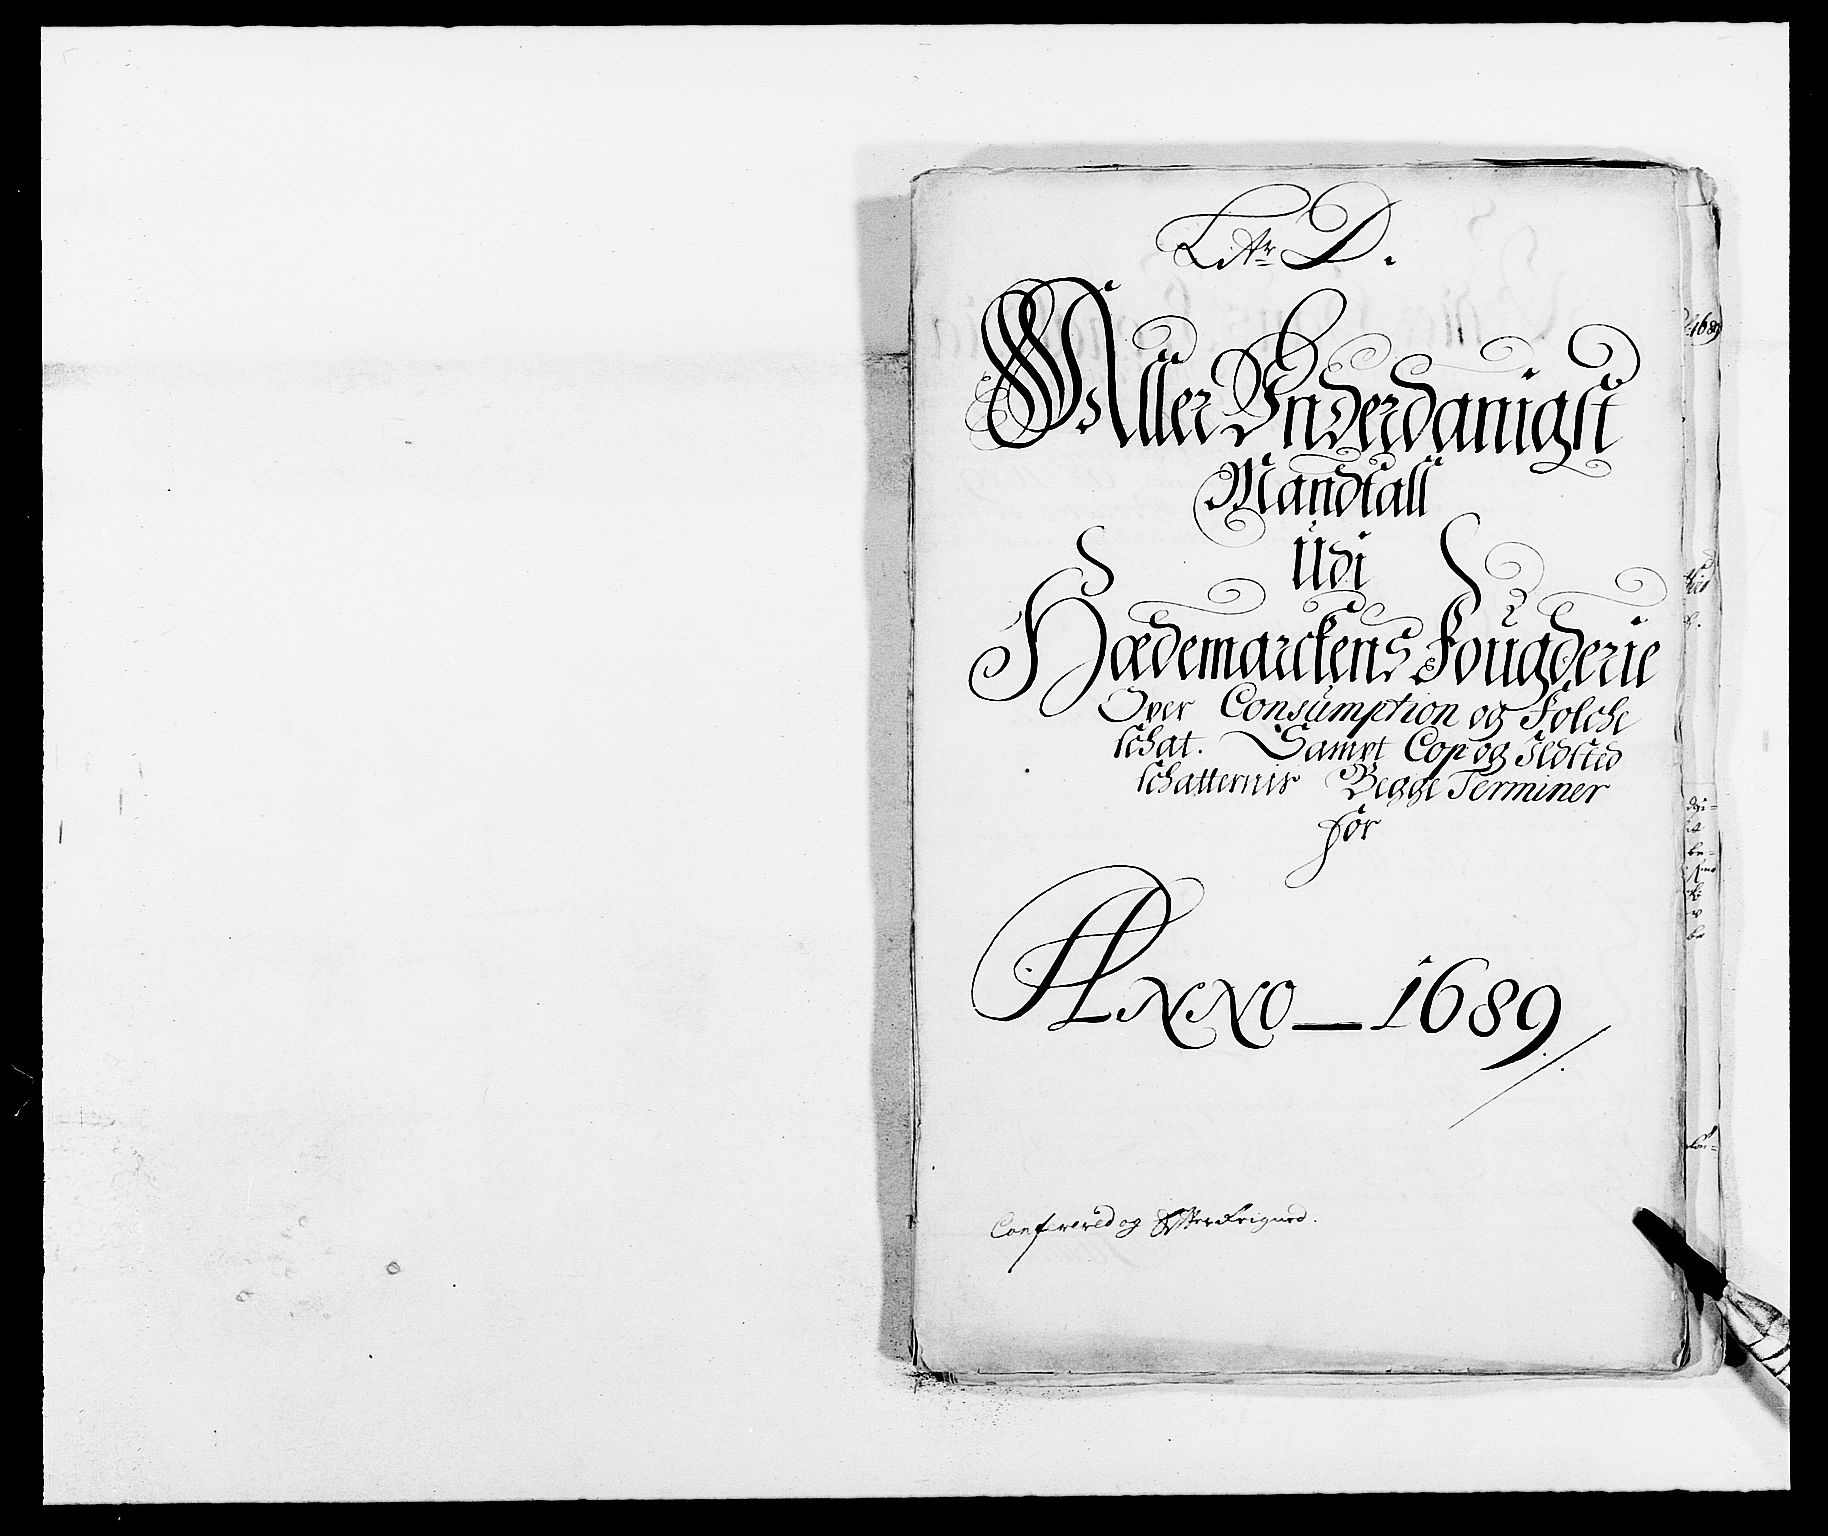 Litr D.
Aller Underdanigst
Mandtall
Udi
Hædemarckens Fougderie
Over Consumption og Folche
schat. Sampt Cop og Ildsted
schatternis Begge Terminer
for
ANNO 1689
Confereredog Efterseigned.
1689